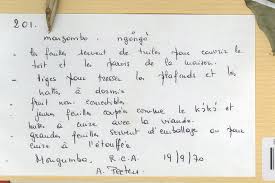 201.
mangombo. ngongo
- les feuilles servent de tuiles pour couvrir le
toit et les parois de la maison.
- tiges pour tresser les plafonds et les
nattes à dormir
- fruit non comestibles
- jeunes feuilles coupées comme le kòkó et
à cuire avec la viande.
- grandes feuilles servent d'emballage ou pour
cuire à l'étouffée
Mongumba, R.C.A. 19/9/70
A.